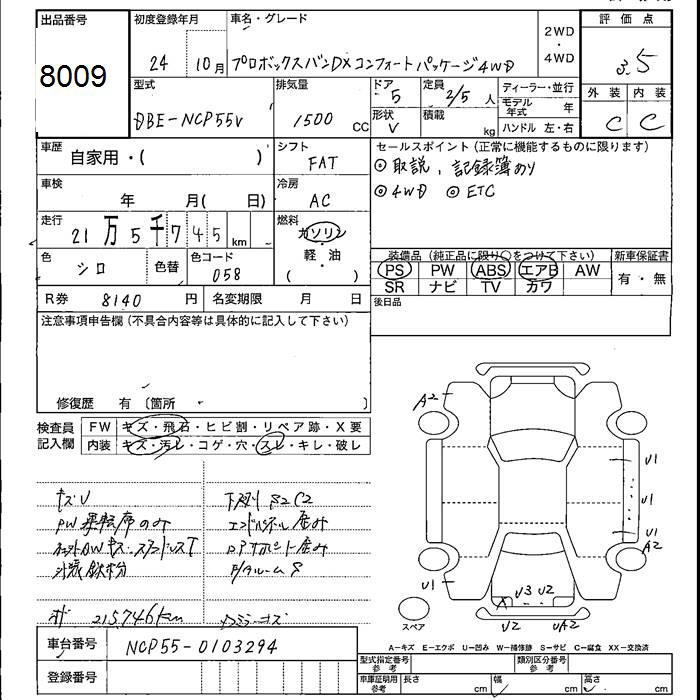 出品番号
8009
初度登録年月
24 10月
車名・グレード
プロボックスバンDX コンフォートパッケージ4WD
2WD
・
4WD
評価点
3.5
型式
DBE-NCP55V
排気量
1500 CC
ドア
5
形状
V
定員
2/5 人
積載
kg
ディーラー・並行
モデル年式 年
ハンドル 左・右
外装 内装
C C
車歴
自家用・( )
シフト
FAT
セールスポイント(正常に機能するものに限ります)
◎取説，記録簿あり
◎4WD ◎ETC
車検
年 月( 日)
冷房
AC
走行
21万5千745 km
燃料
ガソリン
・
軽・油
( )
色
シロ
色替
色コード
058
装備品(純正品に限り○をつけて下さい)
PS PW ABS エアB AW
SR ナビ TV カワ
新車保証書
有・無
R券 8140 円
名変期限 月 日
後日品
注意事項申告欄(不具合内容等は具体的に記入して下さい)
修復歴 有 〔箇所 〕
検査員記入欄
FW キズ・飛石・ヒビ割・リペア跡・X要
内装 キズ・汚レ・コゲ・穴・スレ・キレ・破レ
キズU
PW運転席のみ
下廻りS2C2
外装鉄粉
215,746km
車台番号
NCP55-0103294
登録番号
A2
U1
U1
U1
A2
U1
U3 U2
A
U2
UA2
スペア
A-キズ E-エクボ U-凹み W-補修跡 S-サビ C-腐食 XX-交換済
型式指定番号 参考
類別区分番号 参考
車庫証明用 参考
長さ cm
幅 cm
高さ cm